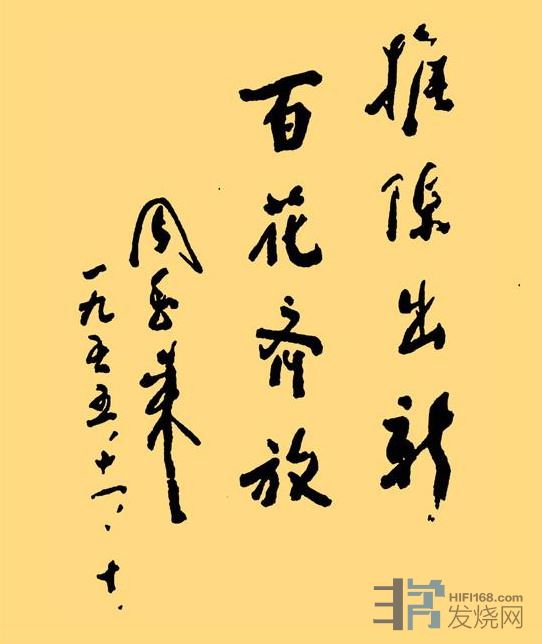 推陈出新
百花齐放
周恩来
一九五五、十一、十、
HIFI168.com
发烧网